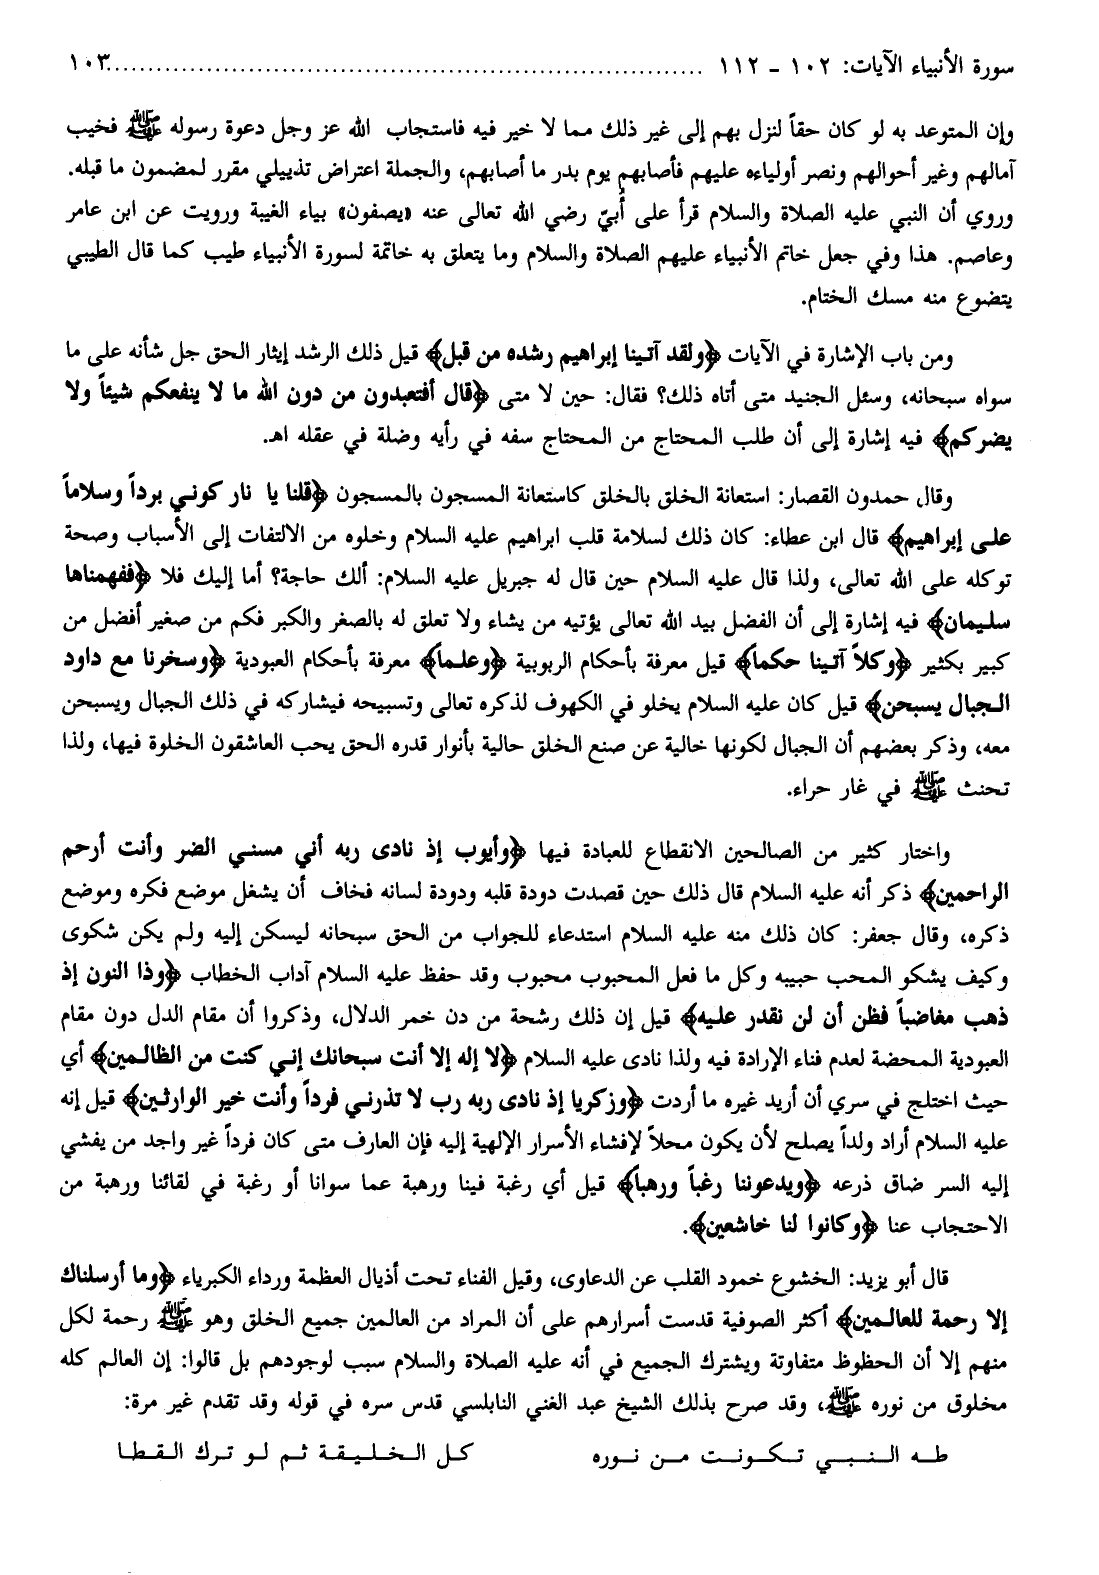 سورة الأنبياء الآيات: ١٠٢ - ١١٢ ........................................................................ ١٠٣
وإن المتوعد به لو كان حقاً لنزل بهم إلى غير ذلك مما لا خير فيه فاستجاب الله عز وجل دعوة رسوله ﷺ فخيب
آمالهم وغير أحوالهم ونصر أولياءه عليهم فأصابهم يوم بدر ما أصابهم، والجملة اعتراض تذييلي مقرر لمضمون ما قبله.
وروي أن النبي عليه الصلاة والسلام قرأ على أُبيّ رضي الله تعالى عنه «يصفون» بياء الغيبة ورويت عن ابن عامر
وعاصم. هذا وفي جعل خاتم الأنبياء عليهم الصلاة والسلام وما يتعلق به خاتمة لسورة الأنبياء طيب كما قال الطيبي
يتضوع منه مسك الختام.
ومن باب الإشارة في الآيات ﴿ولقد آتينا إبراهيم رشده من قبل﴾ قيل ذلك الرشد إيثار الحق جل شأنه على ما
سواه سبحانه، وسئل الجنيد متى أتاه ذلك؟ فقال: حين لا متى ﴿قال أفتعبدون من دون الله ما لا ينفعكم شيئاً ولا
يضركم﴾ فيه إشارة إلى أن طلب المحتاج من المحتاج سفه في رأيه وضلة في عقله اهـ.
وقال حمدون القصار: استعانة الخلق بالخلق كاستعانة المسجون بالمسجون ﴿قلنا يا نار كوني برداً وسلاماً
على إبراهيم﴾ قال ابن عطاء: كان ذلك لسلامة قلب ابراهيم عليه السلام وخلوه من الالتفات إلى الأسباب وصحة
توكله على الله تعالى، ولذا قال عليه السلام حين قال له جبريل عليه السلام: ألك حاجة؟ أما إليك فلا ﴿ففهمناها
سليمان﴾ فيه إشارة إلى أن الفضل بيد الله تعالى يؤتيه من يشاء ولا تعلق له بالصغر والكبر فكم من صغير أفضل من
كبير بكثير ﴿وكلاً آتينا حكماً﴾ قيل معرفة بأحكام الربوبية ﴿وعلماً﴾ معرفة بأحكام العبودية ﴿وسخرنا مع داود
الجبال يسبحن﴾ قيل كان عليه السلام يخلو في الكهوف لذكره تعالى وتسبيحه فيشاركه في ذلك الجبال ويسبحن
معه، وذكر بعضهم أن الجبال لكونها خالية عن صنع الخلق حالية بأنوار قدره الحق يحب العاشقون الخلوة فيها، ولذا
تحنث ﷺ في غار حراء.
واختار كثير من الصالحين الانقطاع للعبادة فيها ﴿وأيوب إذ نادى ربه أني مسني الضر وأنت أرحم
الراحمين﴾ ذكر أنه عليه السلام قال ذلك حين قصدت دودة قلبه ودودة لسانه فخاف أن يشغل موضع فكره وموضع
ذكره، وقال جعفر: كان ذلك منه عليه السلام استدعاء للجواب من الحق سبحانه ليسكن إليه ولم يكن شكوى
وكيف يشكو المحب حبيبه وكل ما فعل المحبوب محبوب وقد حفظ عليه السلام آداب الخطاب ﴿وذا النون إذ
ذهب مغاضباً فظن أن لن نقدر عليه﴾ قيل إن ذلك رشحة من دن خمر الدلال، وذكروا أن مقام الدل دون مقام
العبودية المحضة لعدم فناء الإرادة فيه ولذا نادى عليه السلام ﴿لا إله إلا أنت سبحانك إني كنت من الظالمين﴾ أي
حيث اختلج في سري أن أريد غيره ما أردت ﴿وزكريا إذ نادى ربه رب لا تذرني فرداً وأنت خير الوارثين﴾ قيل إنه
عليه السلام أراد ولداً يصلح لأن يكون محلاً لإفشاء الأسرار الإلهية إليه فإن العارف متى كان فرداً غير واجد من يفشي
إليه السر ضاق ذرعه ﴿ويدعوننا رغباً ورهباً﴾ قيل أي رغبة فينا ورهبة عما سوانا أو رغبة في لقائنا ورهبة من
الاحتجاب عنا ﴿وكانوا لنا خاشعين﴾.
قال أبو يزيد: الخشوع خمود القلب عن الدعاوى، وقيل الفناء تحت أذيال العظمة ورداء الكبرياء ﴿وما أرسلناك
إلا رحمة للعالمين﴾ أكثر الصوفية قدست أسرارهم على أن المراد من العالمين جميع الخلق وهو ﷺ رحمة لكل
منهم إلا أن الحظوظ متفاوتة ويشترك الجميع في أنه عليه الصلاة والسلام سبب لوجودهم بل قالوا: إن العالم كله
مخلوق من نوره ﷺ، وقد صرح بذلك الشيخ عبد الغني النابلسي قدس سره في قوله وقد تقدم غير مرة:
طه النبي تكونت من نوره كل الخليقة ثم لو ترك القطا